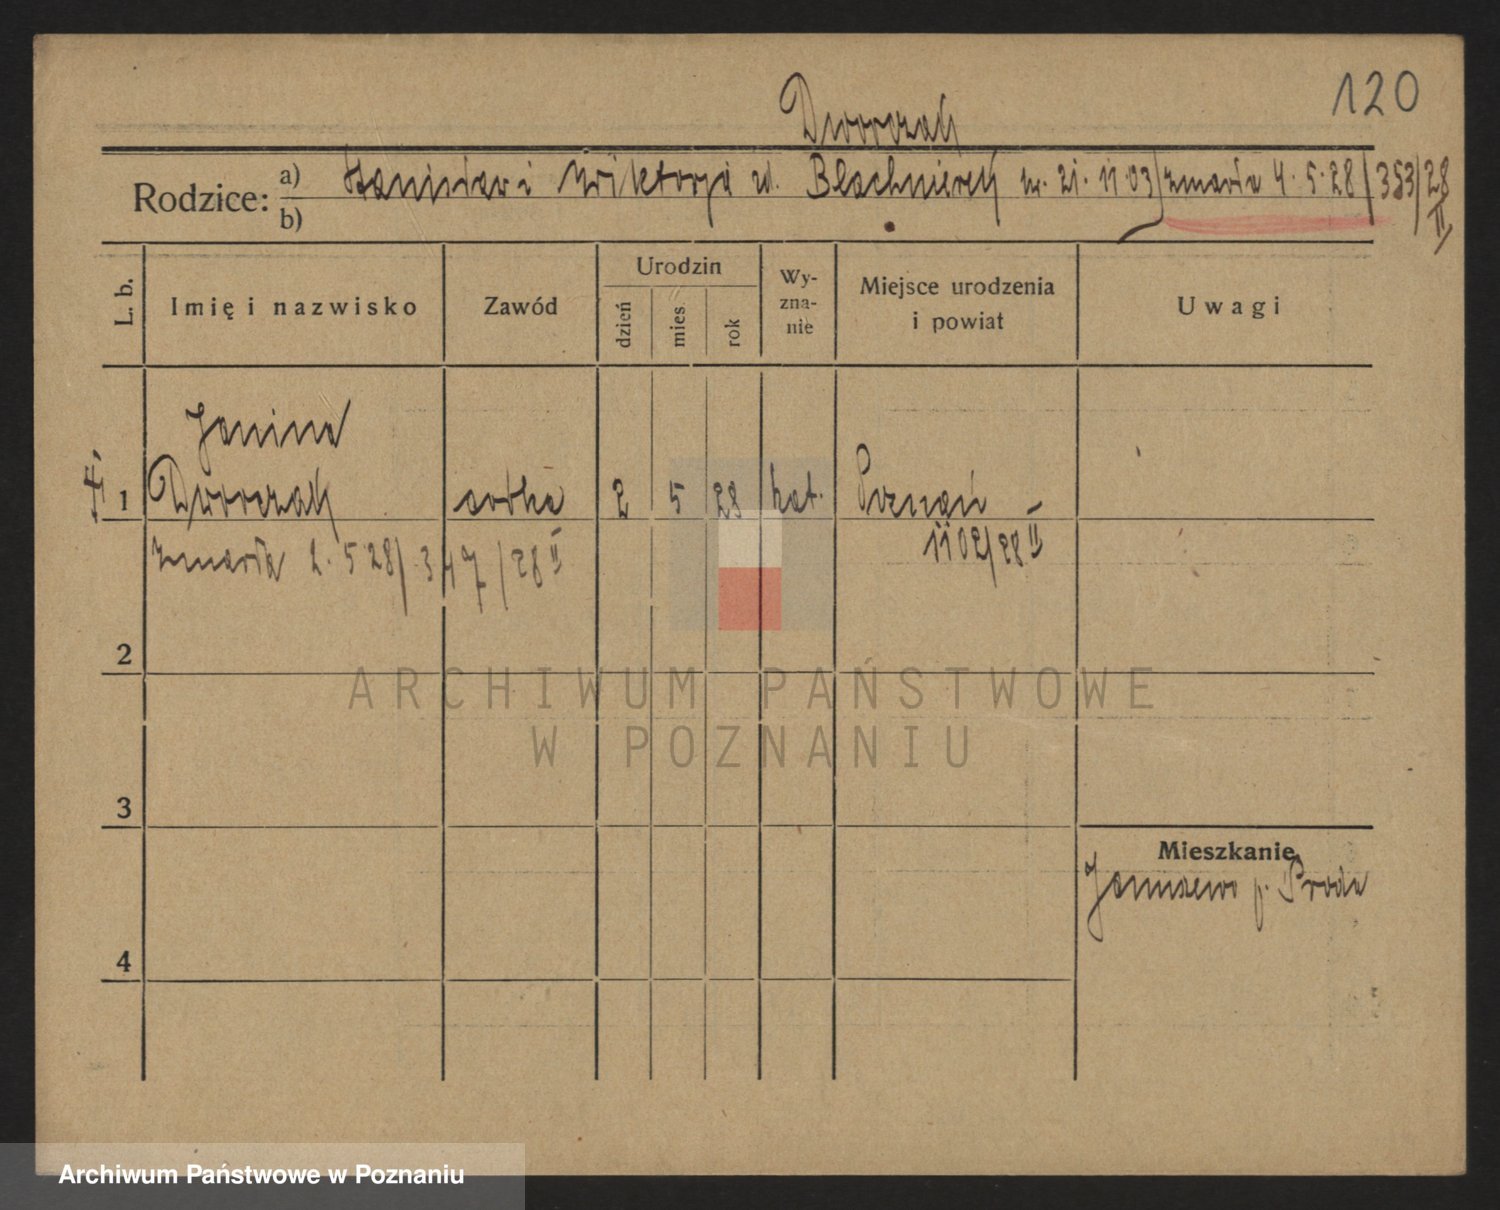 120
Dworczak
Rodzice: a) Stanisław i Wiktorja zd. Blachnierek ur. 21. 11 03) zmarła 4. 5. 28/353/28 II
b)
L. b.
Imię i nazwisko
Zawód
Urodzin
dzień
mies.
rok
Wy-
zna-
nie
Miejsce urodzenia
i powiat
Uwagi
Janina
1 Dworczak córka 2 5 28 kat. Poznań –
zmarła 2. 5 28/347/28 II 1102/28 II
2
ARCHIWUM PAŃSTWOWE
W POZNANIU
3
Mieszkanie
Januszewo p. Środa
4
Archiwum Państwowe w Poznaniu